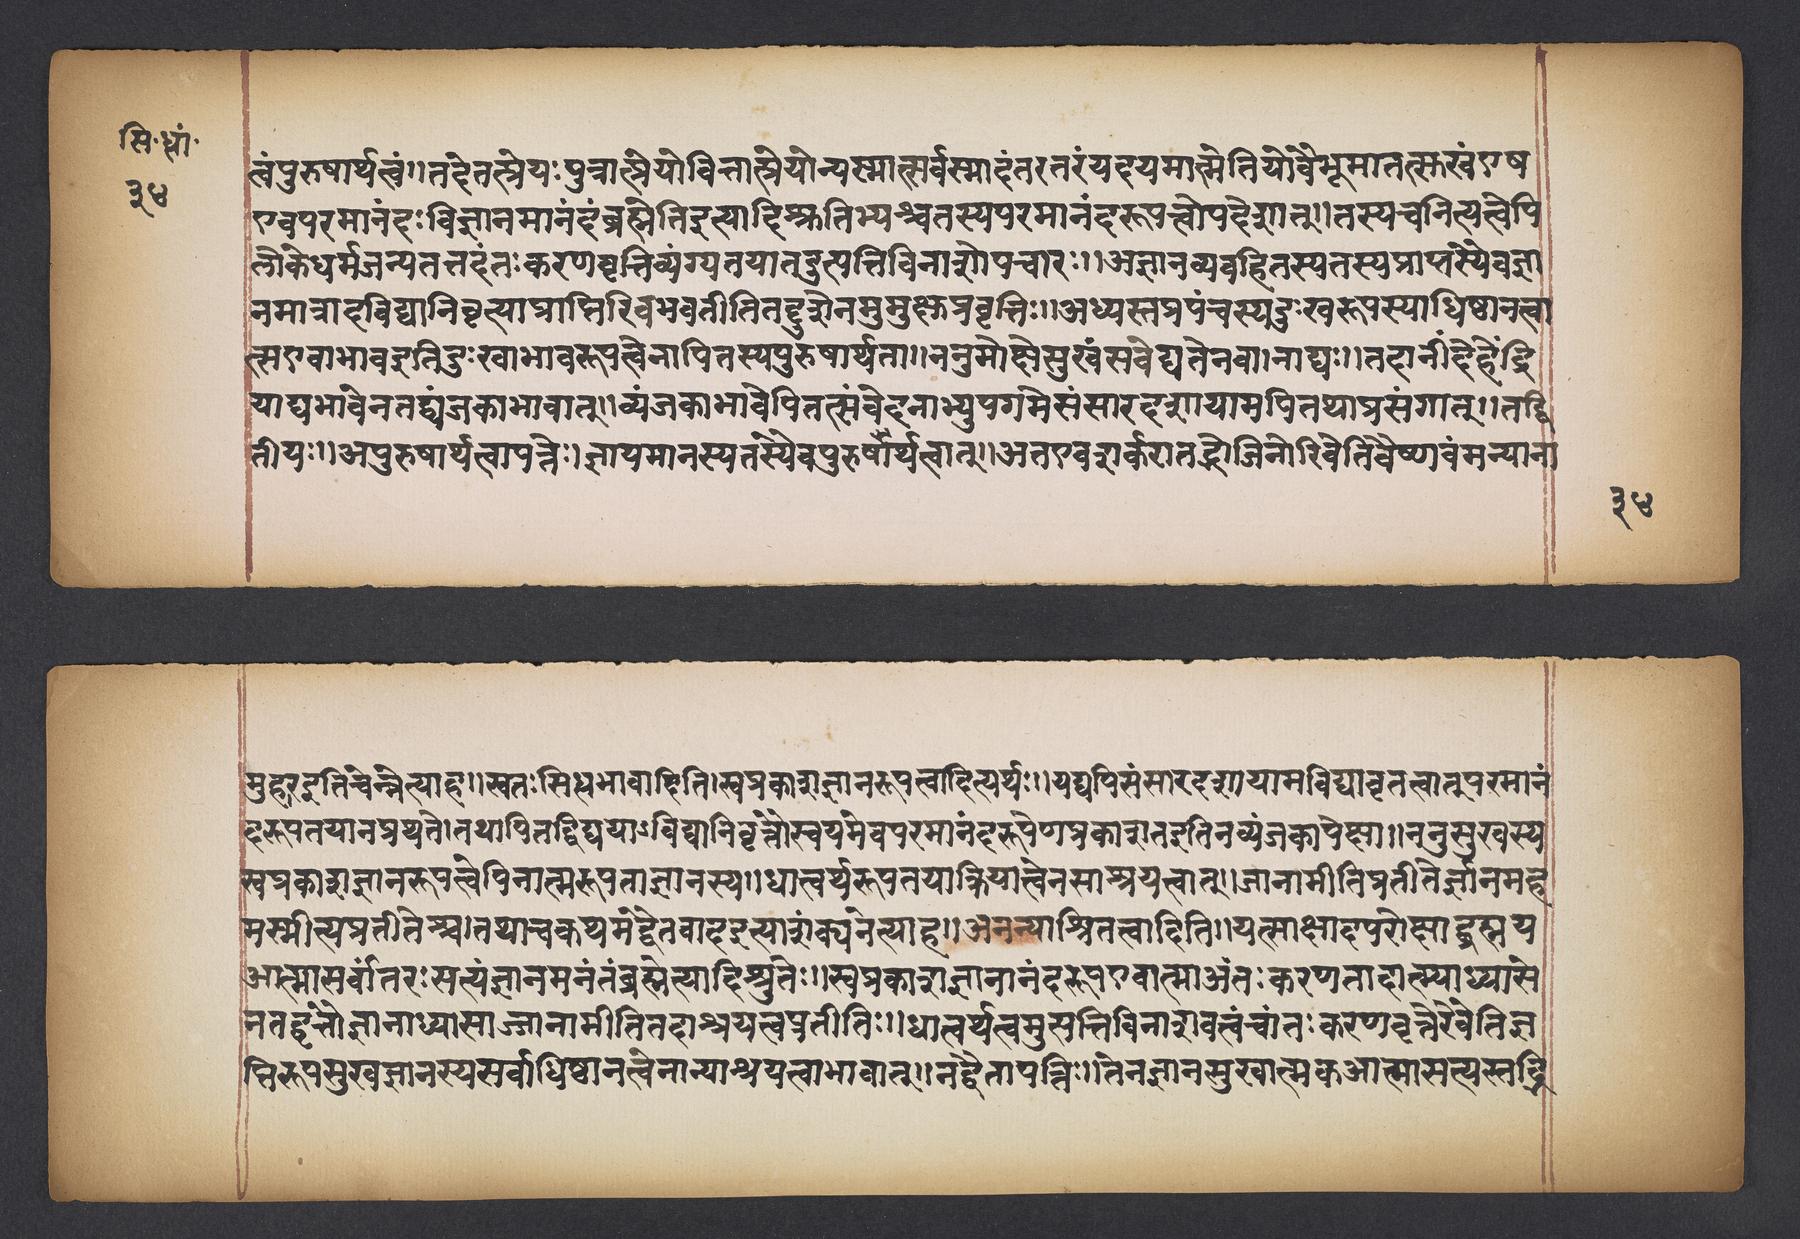 सि॰ध्यां॰
३४
त्वंपुरुषार्थत्वं॥तदेतत्प्रेयःपुत्रात्प्रेयोवित्तात्प्रेयोन्यस्मात्सर्वस्मादंतरतरंयदयमात्मेतियोवैभूमातत्सुखंएष
एवपरमानंदःविज्ञानमानंदंब्रह्मेतिइत्यादिश्रुतिभ्यश्चतस्यपरमानंदरूपत्वोपदेशात्॥तस्यचनित्यत्वेपि
लौकेधर्मजन्यतत्तदंतःकरणवृत्तिव्यंग्यतयातदुत्पत्तिविनाशोपचारः॥अज्ञानव्यवहितस्यतस्यप्राप्तस्यैवज्ञा
नमात्रादविद्यानिवृत्याप्राप्तिरिवभवतीतितदुद्देशेनमुमुक्षुप्रवृत्तिः॥अध्यस्तप्रपंचस्यदुःखरूपस्याधिष्ठानत्वा
त्सएवाभावइतिदुःखाभावरूपत्वेनापितस्यपुरुषार्थता॥ननुमोक्षेसुखंसंवेद्यतेनवा।नाद्यः॥तदानींदेहेंद्रि
याद्यभावेनतद्व्यंजकाभावात्॥व्यंजकाभावेपितत्संवेदनाभ्युपगमेसंसारदशायामपितथाप्रसंगात्॥तद्वि
तीयः॥अपुरुषार्थत्वापत्तेः।ज्ञायमानस्यतस्यैवपुरुषार्थत्वात्॥अतएवशर्करातद्भोजिनोरिवेतिवैष्णवंमन्याना
३४
मुद्गरइतिचेन्नेत्याह॥स्वतःसिद्धभावादिति।स्वप्रकाशज्ञानरूपत्वादित्यर्थः॥यद्यपिसंसारदशायामविद्यावृतत्वात्परमानं
दरूपतयानप्रथते।तथापितद्विद्ययाऽविद्यानिवृत्तौस्वयमेवपरमानंदरूपेणप्रकाशतइतिनव्यंजकापेक्षा॥ननुसुखस्य
स्वप्रकाशज्ञानरूपत्वेपिनात्मरूपताज्ञानस्य॥धात्वर्थरूपतयाक्रियात्वेनसाश्रयत्वात्॥जानामीतिप्रतीतेर्ज्ञानमह
मस्मीत्यप्रतीतेश्च।तथाचकथमद्वैतवादइत्याशंक्यनेत्याह॥अनन्याश्रितत्वादिति॥यत्साक्षादपरोक्षाद्ब्रह्मय
आत्मासर्वांतरःसत्यंज्ञानमनंतंब्रह्मेत्यादिश्रुतेः॥स्वप्रकाशज्ञानानंदरूपएवात्माअंतःकरणतादात्म्याध्यासे
नतद्वृत्तौज्ञानाध्यासाज्जानामीतितदाश्रयत्वप्रतीतिः॥धात्वर्थत्वमुत्पत्तिविनाशवत्वंचांतःकरणवृत्तेरेवेतिज्ञ
प्तिरूपसुखज्ञानस्यसर्वाधिष्ठानत्वेनान्याश्रयत्वाभावात्॥नद्वैतापत्तिः॥तेनज्ञानसुखात्मकआत्मासत्यस्तद्भि